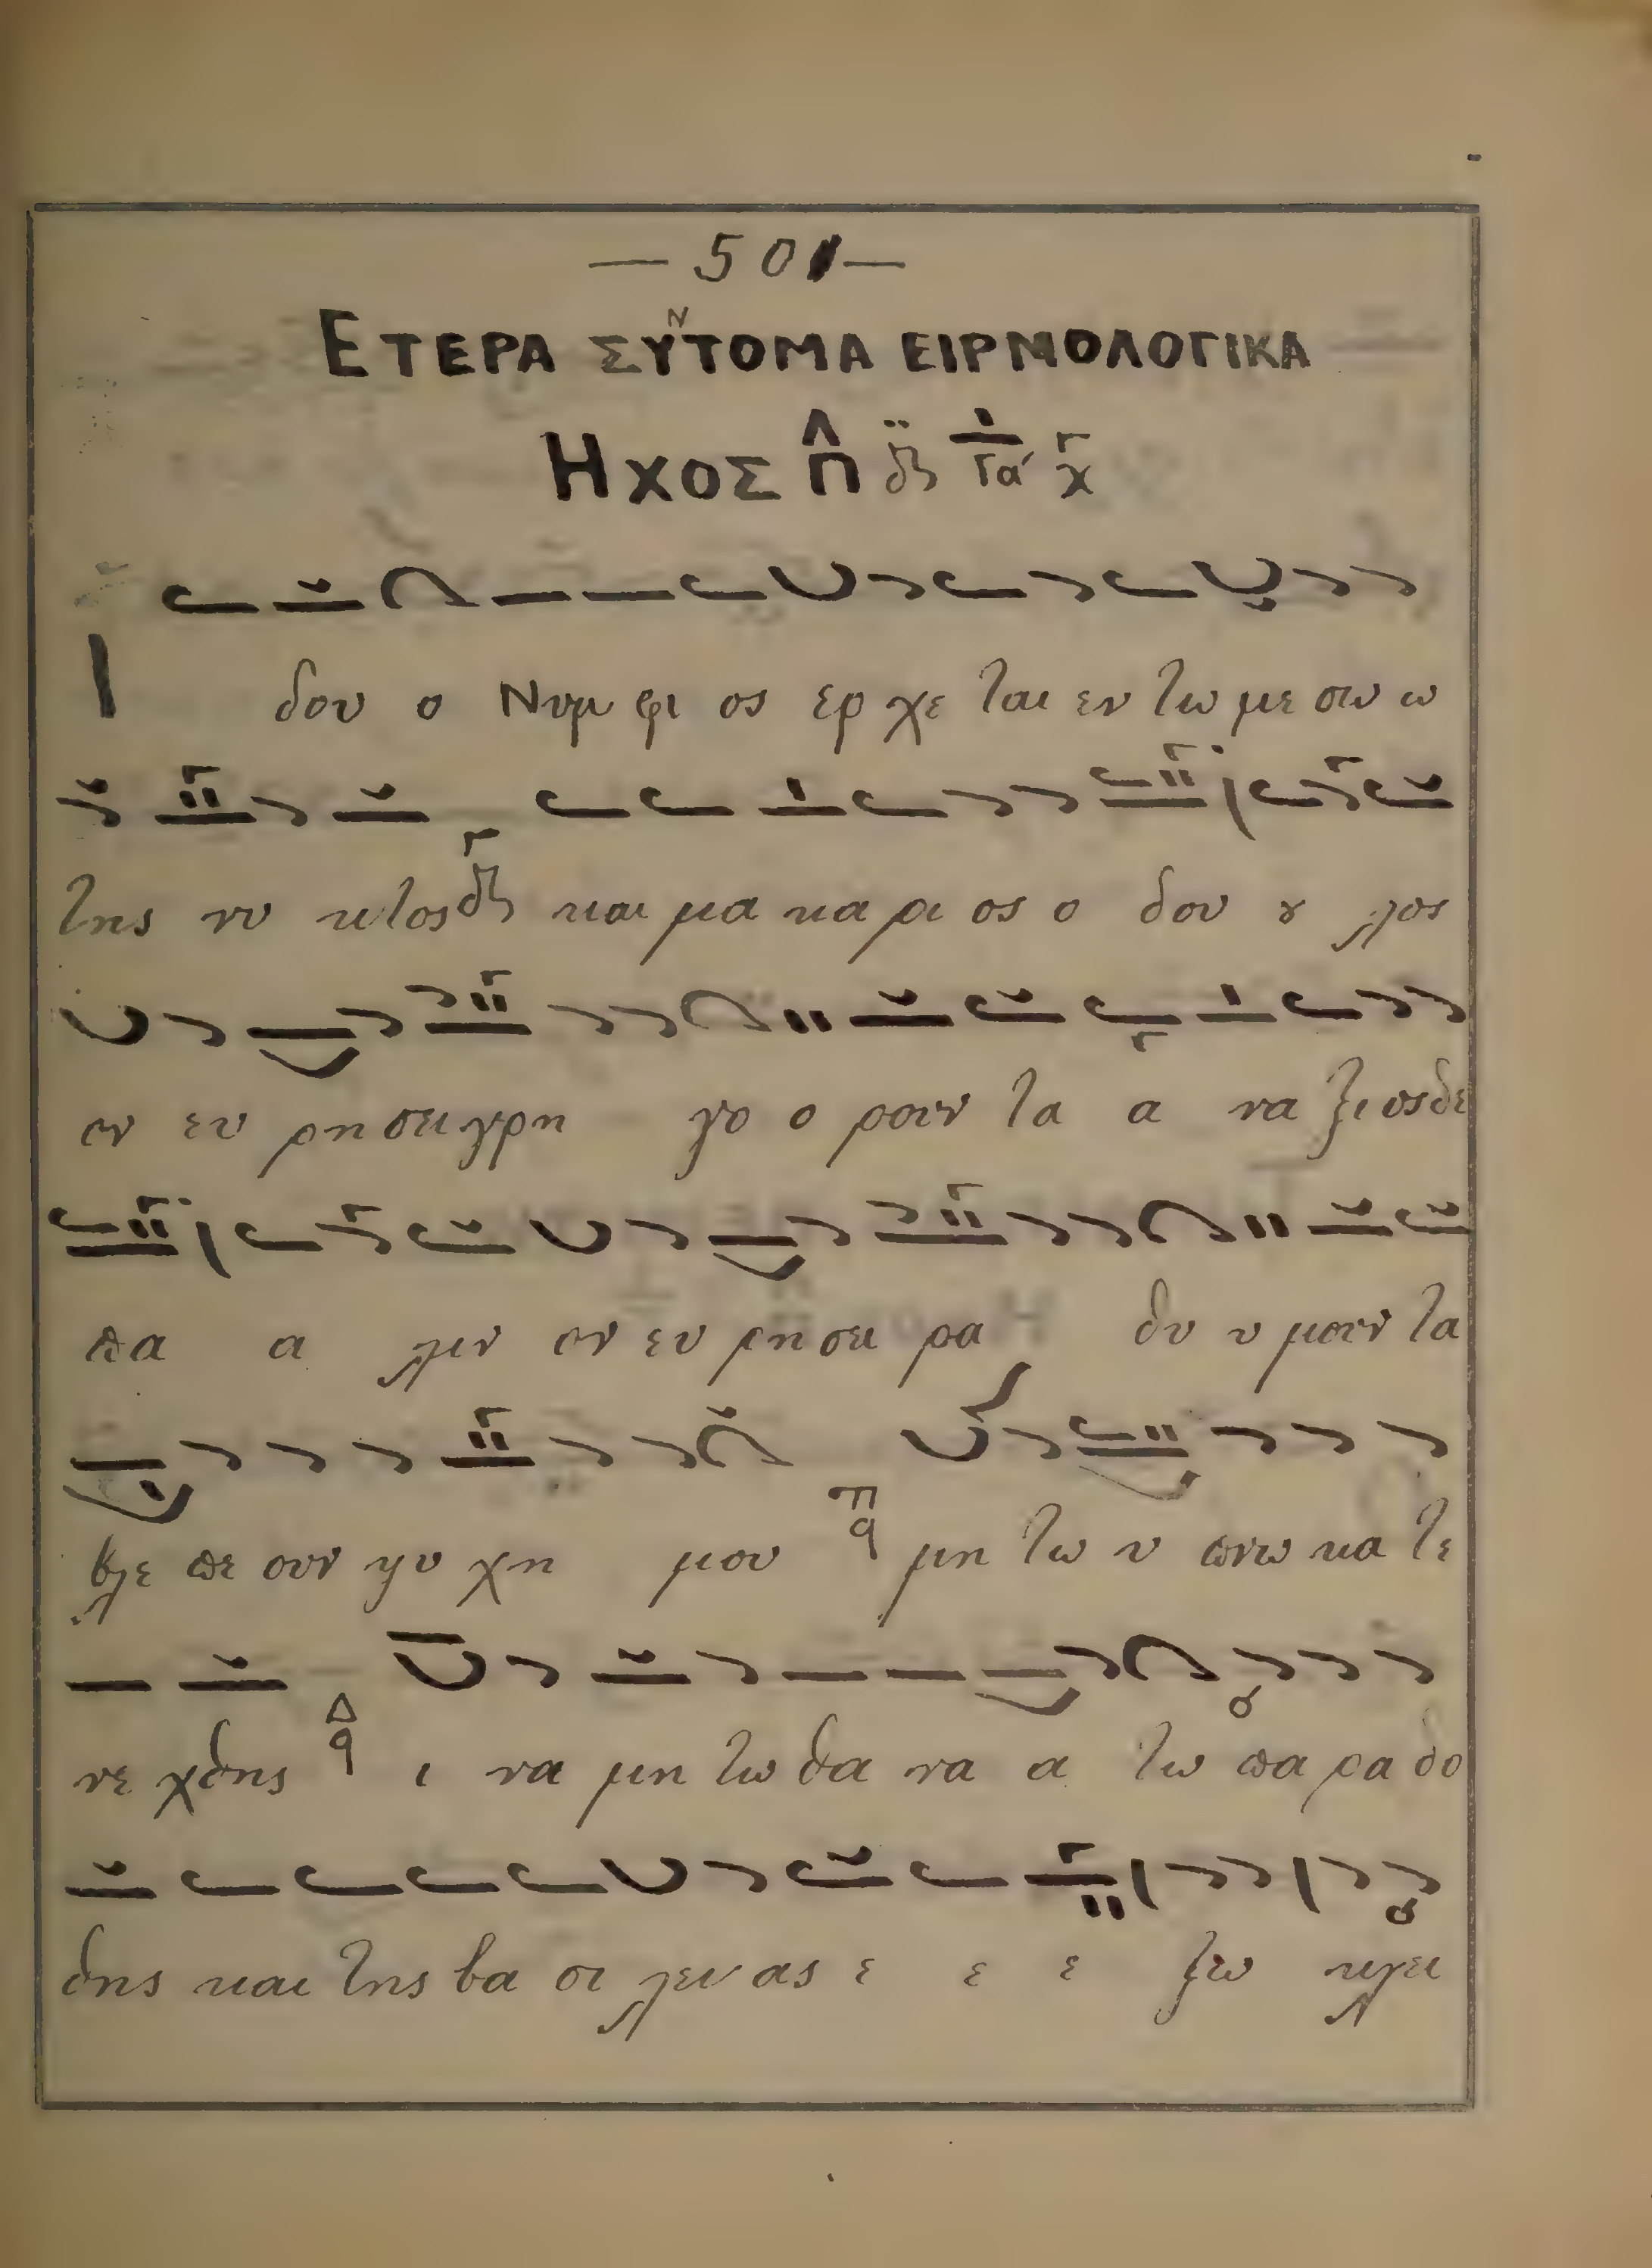 — 501 —
ΕΤΕΡΑ ΣΥΝΤΟΜΑ ΕΙΡΜΟΛΟΓΙΚΑ
ΗΧΟΣ Π Γα χ
Ι δου ο Νυμ φι ος ερ χε ται εν τω με σω ω
της νυ κτος και μα κα ρι ος ο δου ȣ λος
ον ευ ρη σει γρη γο ο ρουν τα α να ξι ος δε
πα α λιν ον ευ ρη σει ρα θυ υ μουν τα
βλε πε ουν ψυ χη μου μη τω υ πνω κα τε
νε χθης ι να μη τω θα να α τω πα ρα δο
θης και της βα σι λει ας ε ε ε ξω κλει